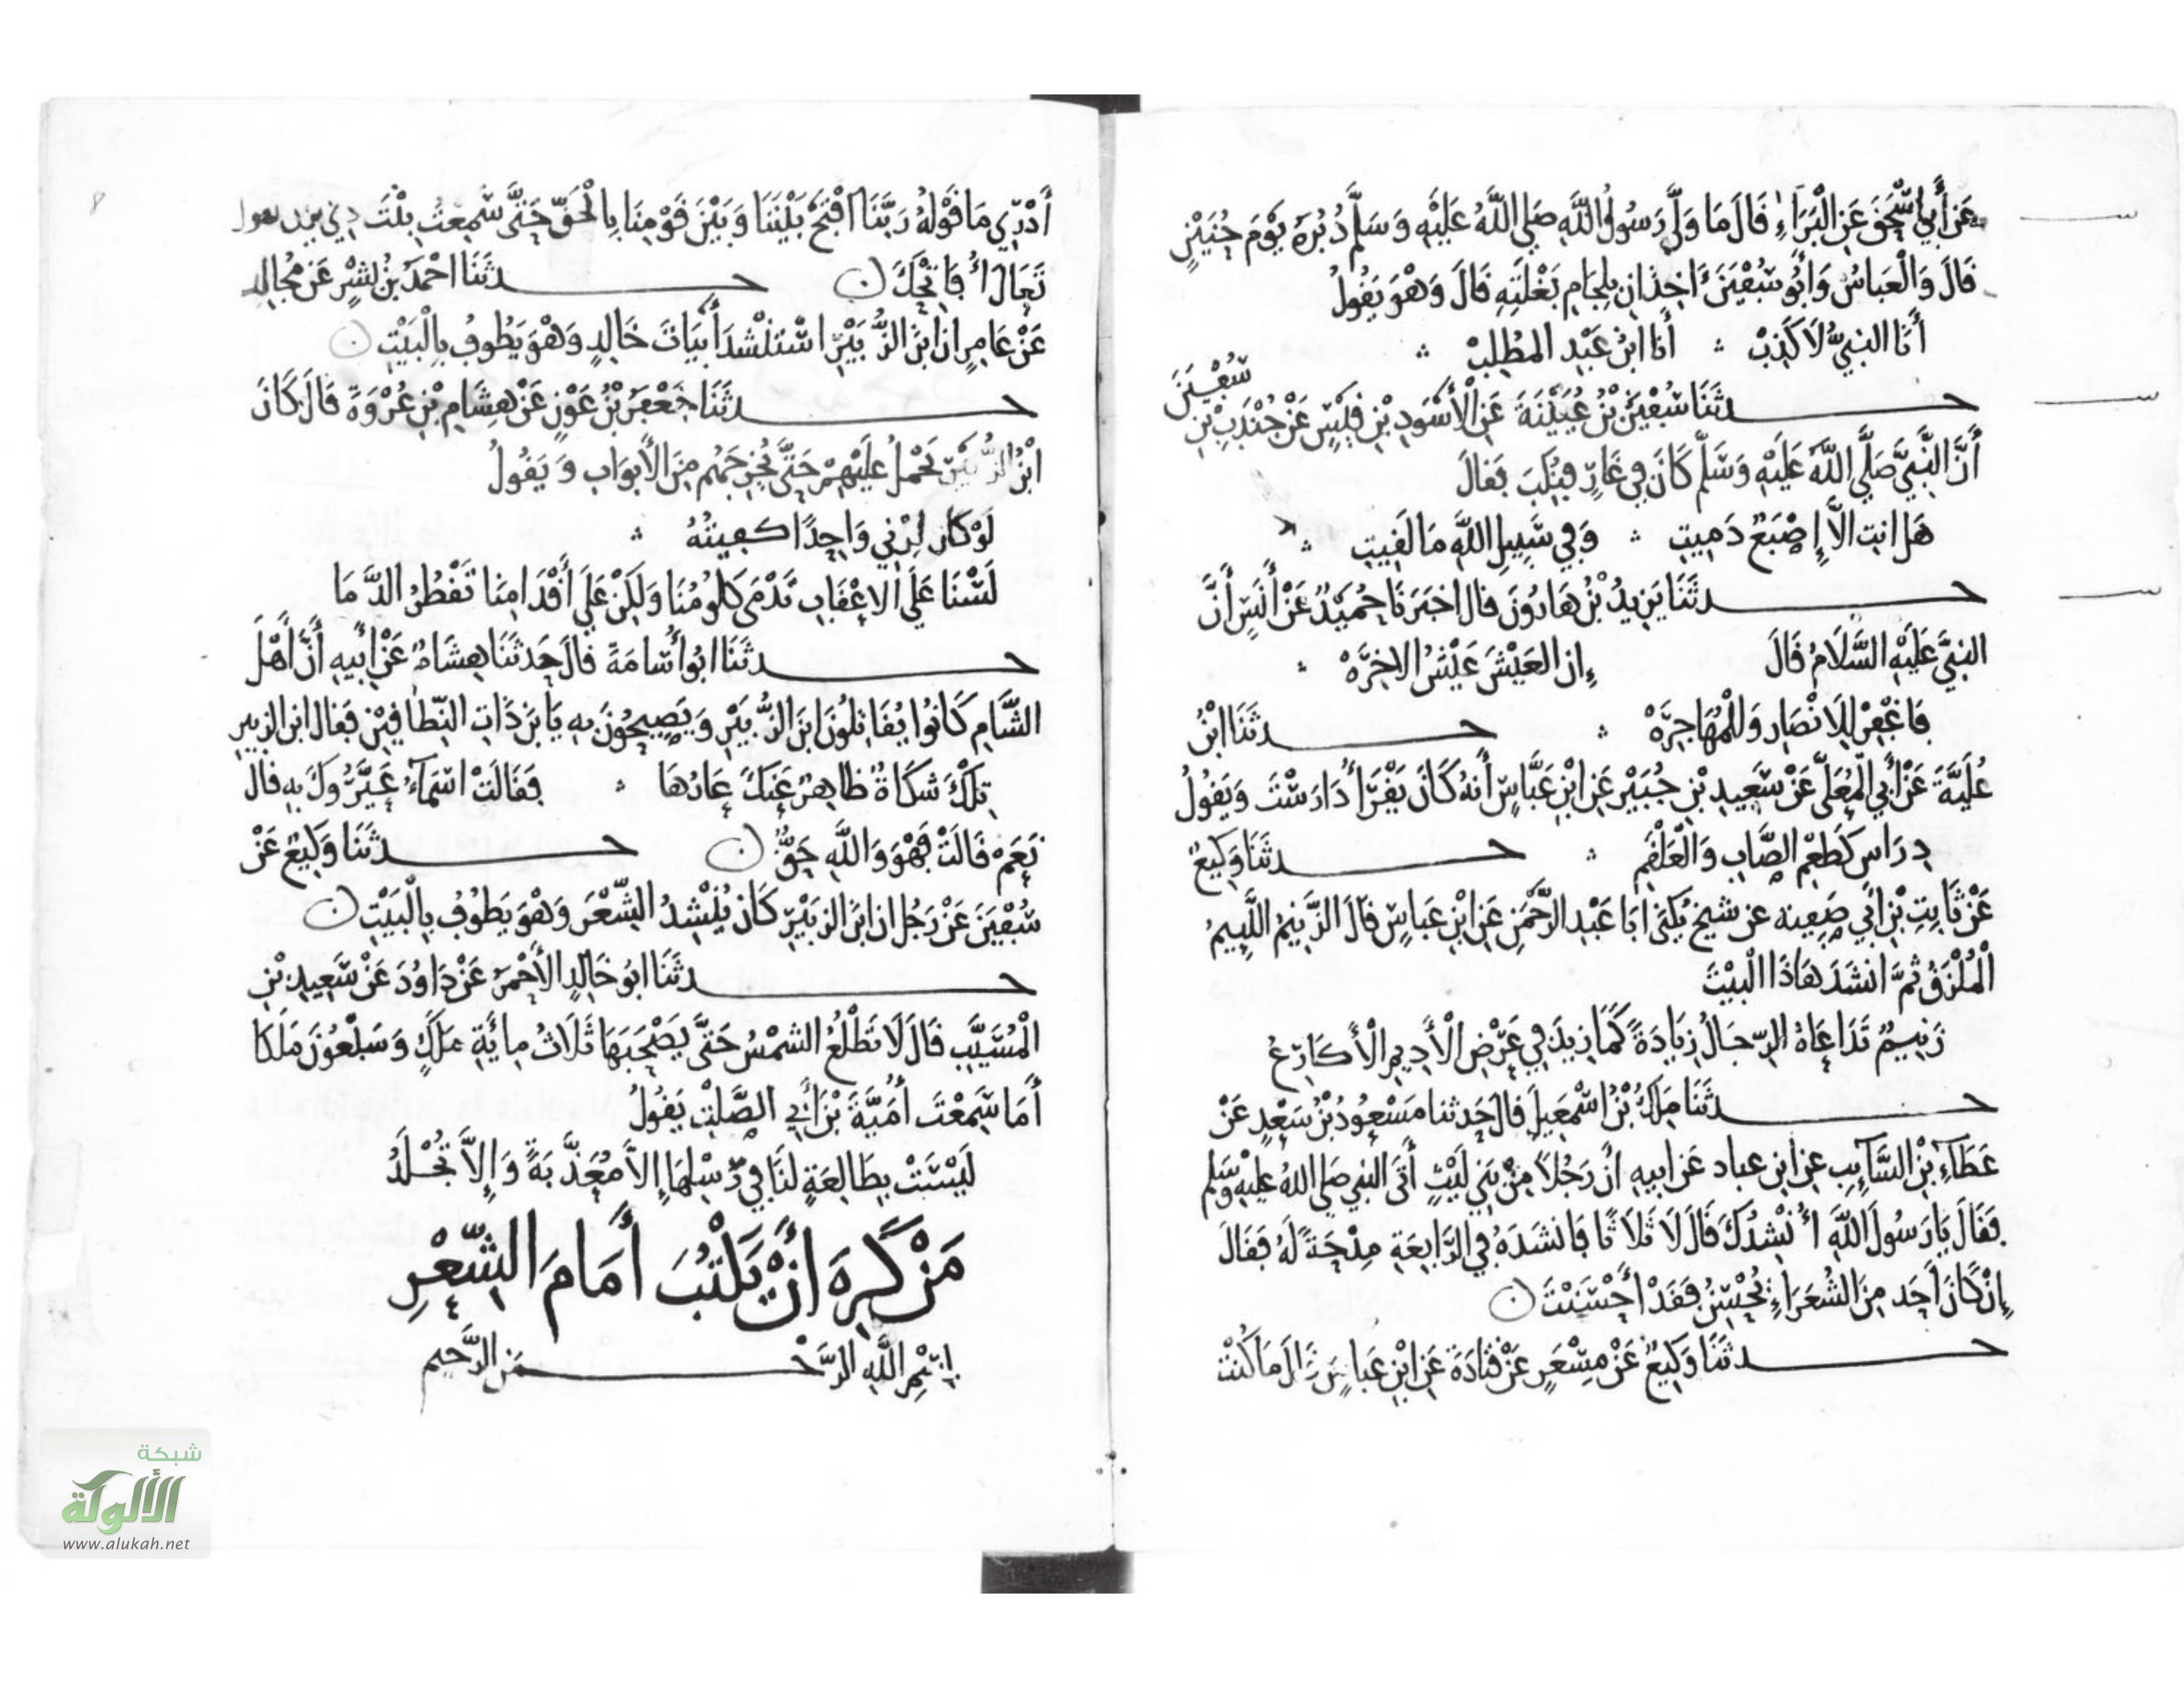 عَن أَبِي إسْحَقَ عَنِ الْبَرَاءِ قَالَ مَا وَلَّى رَسُولُ اللَّهِ صَلى اللَّهُ عَلَيْهِ وَسَلَّم دُبُرَهُ يَوْمَ حُنَيْنٍ
قَالَ وَالْعَبَاسُ وَأَبُو سُفْيَنَ ءَاخِذَانِ بِلِجَامِ بَغْلَتِهِ قَالَ وَهْوَ يَقُولُ
أَنَا النبِيُّ لَا كَذِبْ ۞ أَنَا ابْنُ عَبْدِ المُطَّلِبْ ۞
حدثَنَا سُفْيَنُ بْنُ عُيَيْنَةَ عَنِ الْأَسْوَدِ بْنِ قَيْسٍ عَنْ جُنْدَبِ بْنِ سُفْيَنَ
أَنَّ النَّبِيَّ صَلَّى اللَّهُ عَلَيْهِ وَسَلَّمَ كَانَ فِي غَارٍ فَنُكِبَ فَقَالَ
هَل انتِ الاَّ إِصْبَعٌ دَمِيتِ ۞ وَفِي سَبِيلِ اللَّهِ مَا لَقِيتِ ۞
حدثَنَا يَزِيدُ بْنُ هَارُونَ قال اخبَرَنَا حُمَيْدٌ عَنْ أَنَسٍ أَنَّ
النبِيَّ عَلَيْهِ السَّلَامُ قَالَ إِن العَيْشَ عَيْشُ الاخِرَهْ ۞
فَاغْفِرْ لِلَانْصَارِ وَلْمُهَاجِرَهْ ۞ حدثَنَا ابْنُ
عُلَيَّةَ عَنْ أَبِي الْمُعَلَّى عَنْ سَعِيدِ بْنِ جُبَيْرٍ عَنِ ابْنِ عَبَّاسٍ أَنهُ كَانَ يَقْرَأُ دَارَسْتَ وَيَقُولُ
دِرَاس كَطَعْمِ الصَّابِ وَالْعَلْقَمِ ۞ حدثَنَا وَكِيعٌ
عَنْ ثَابِتِ بْنِ أَبِي صَفِيه عن شيخ يُكَنَى أبَا عَبْدِ الرَّحْمَنِ عَنِ ابْنِ عَبَاسٍ قَالَ الزَّنِيمُ اللَّيِيمُ
الْمُلْزَقُ ثُمَّ انشَدَ هَاذَا الْبَيْتَ
زَنِيمٌ تَدَاعَاهُ الرِّجَالُ زِيَادَةً كَمَا زِيدَ فِي عَرْضِ الْأَدِيمِ الْأَكَارِعُ
حدثَنَا مَلِكُ بْنُ اسْمَعِيلَ قَالَ حَدثنا مَسْعُودُ بْنُ سَعْدٍ عَنْ
عَطَاءِ بْنِ السَّآيِبِ عن ابن عباد عَن ابيهِ انَّ رَجُلاً مِنْ بَنِي لَيْثٍ أَتَى النبِي صَلى اللهُ عليهِ وسَلم
فَقَالَ يَا رَسُولَ اللَّهِ أُنْشِدُكَ قَالَ لَا ثَلَاثًا فَانشَدَهُ فِي الرَّابِعَةِ مِدْحَةً لَهُ فَقَالَ
إِنْ كَانَ أَحَد مِنَ الشُعَرَاءِ يُحْسِنُ فَقَدْ أَحْسَنْتَ ن
حدثَنَا وَكِيعٌ عَنْ مِسْعَرٍ عَنْ قَتَادَةَ عَنِ ابْنِ عَبَاسٍ قَالَ مَا كُنْتُ
أَدْرِي مَا قَوْلُهُ رَبَّنَا افْتَحْ بَيْنَنَا وَبَيْنَ قَوْمِنَا بِالْحَقِّ حَتَّى سَمِعْتُ بِنْتَ ذِي يزن تقول
تَعَالَ أُفَاتِحْكَ ن حدثَنَا احْمَدُ بْنُ بِشْرٍ عَن مُجَالِدٍ
عَنْ عَامِرٍ ان ابْنَ الزُّبَيْرِ اسْتَنْشَدَ أَبْيَاتَ خَالِدٍ وَهْوَ يَطُوفُ بِالْبَيْتِ ن
حدثَنَا جَعْفَرُ بْنُ عَوْنٍ عَنْ هِشَامِ بْنِ عُرْوَةَ قَالَ كَانَ
ابْنُ الزُّبَيْرِ يَحْمِلُ عَلَيْهِمْ حَتَّى يُخْرِجَهُم مِنَ الْأَبوَابِ وَيَقُولُ
لَوْ كَانَ قِرْنِي وَاحِدًا كفيتُهُ ۞
لَسْنَا عَلَى الاعْقَابِ تَدْمَى كُلُومُنَا وَلَكِنْ عَلَى أَقْدَامِنَا تَقْطُرُ الدَّمَا
حدثَنَا ابُو أُسَامَةَ قالَ حَدثَنَا هِشَامٌ عَنْ أَبِيهِ أَنَّ أَهْلَ
الشَّامِ كَانُوا يُقَاتِلُونَ ابْنَ الزُّبَيْرِ وَيَصِيحُونَ بِهِ يَا بْنَ ذَاتِ النِّطَاقَيْنِ فَقال ابن الزبيرِ
تِلْكَ شَكَاةٌ ظَاهِرٌ عَنكَ عَارُهَا ۞ فَقَالَتْ اسْمَآءُ عَيَّرُوكَ بِهِ قال
نَعَمْ قَالَتْ فَهْوَ وَاللَّهِ حَقٌّ ن حدثَنَا وَكِيعٌ عَنْ
سُفْيَنَ عَنْ رَجُلٍ ان ابْنَ الزبَيْرِ كَانَ يُنْشِدُ الشِّعْرَ وَهْوَ يَطُوفُ بِالْبَيْتِ ن
حدثَنَا ابُو خَالِدٍ الأَحْمَرُ عَنْ دَاوُدَ عَنْ سَعِيدِ بْنِ
الْمُسَيَّبِ قَالَ لَا تَطْلُعُ الشمْسُ حَتَّى يَصْحَبَهَا ثَلَاثُ مِائَةِ مَلَكٍ وَسَبْعُونَ مَلَكًا
أَمَا سَمِعْتَ أُمَيَّةَ بْنَ أَبِي الصَّلْتِ يَقُولُ
لَيْسَتْ بِطَالِعَةٍ لَنَا فِي رِسْلِهَا إِلاَّ مُعَذَّبَةً وَإِلاَّ تُجْلَدُ
مَنْ كَرِهَ أَنْ يَكْتُبَ أَمَامَ الشِّعْرِ
بِسْمِ اللَّهِ الرَّحْمَنِ الرَّحِيمِ
شبكة
الألوكة
www.alukah.net